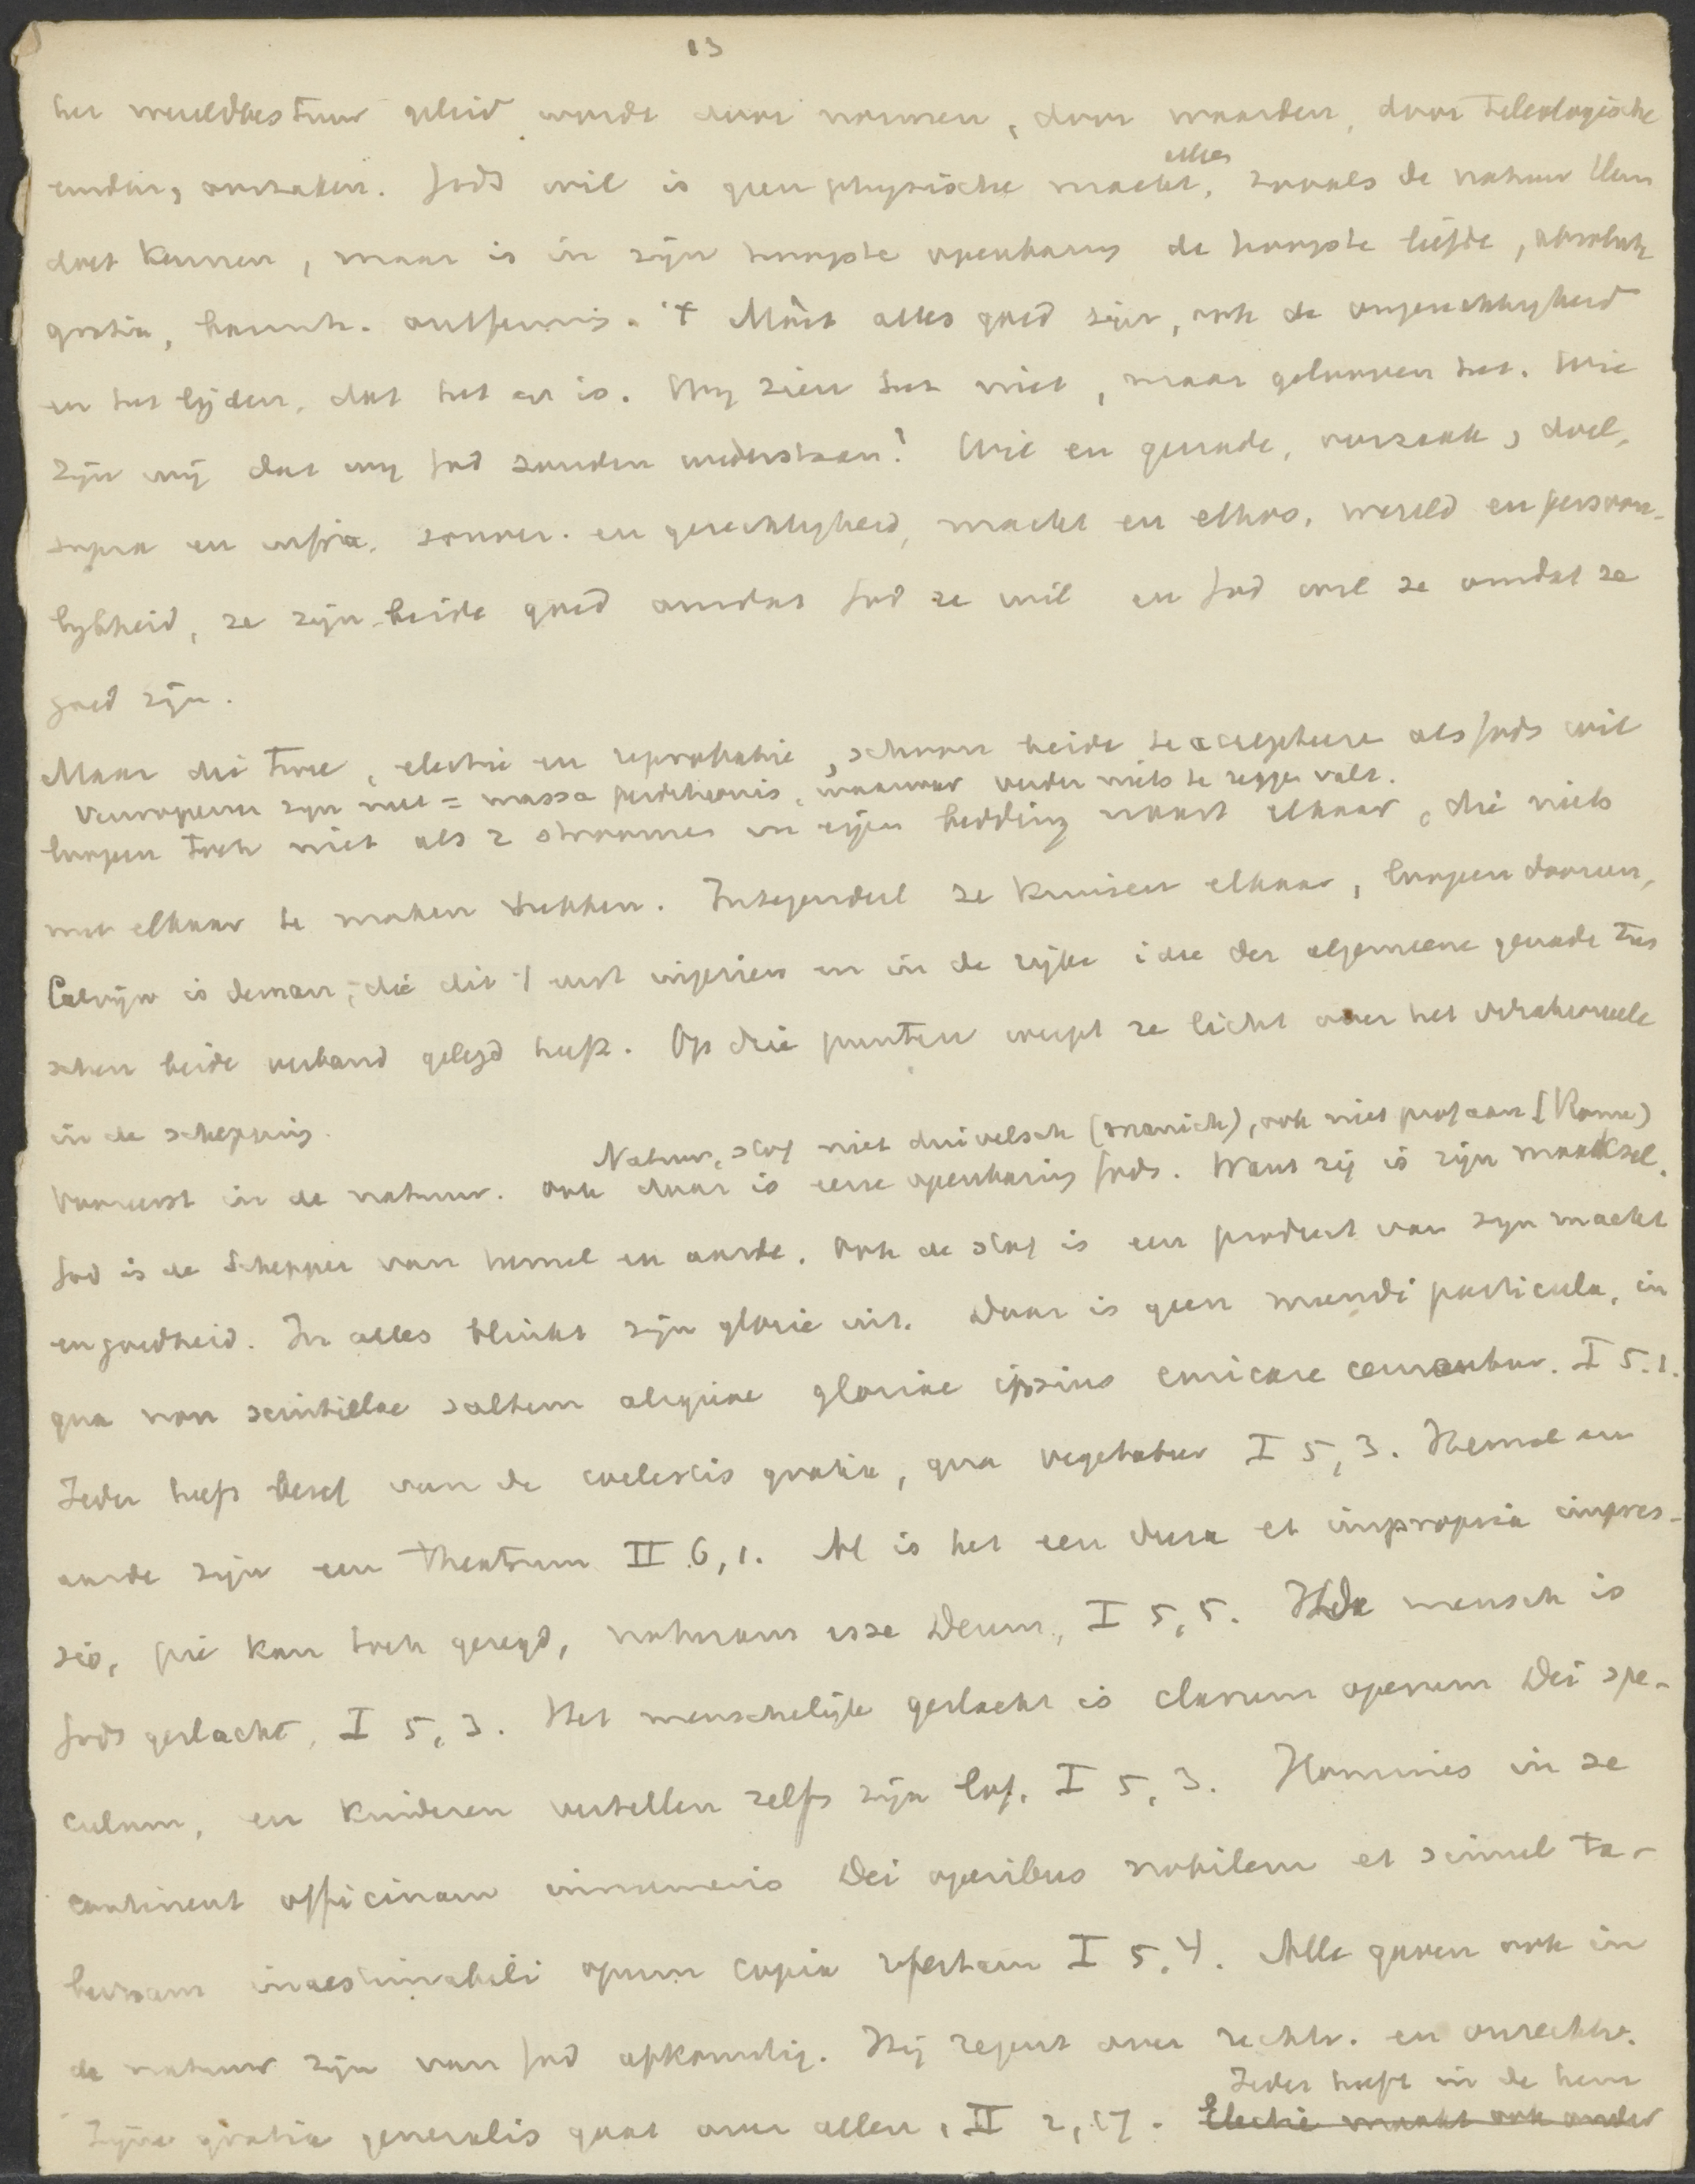 13
het wereldbestuur geleid worde door normen, door waarden, door teleologische
einden, oorzaken. Gods wil is geen physische macht, alles zooals de natuur Hem
doet kennen, maar is in zijn hoogste openbaring de hoogste liefde, absolute
gratie, barmh. ontferming. 't Moet alles goed zijn, ook de ongerechtigheid
en het lijden, dat het er is. Wij zien het niet, maar gelooven het. Wie
zijn wij dat wij God zouden wederstaan? Wil en genade, oorzaak, doel,
supra en infra, souver. en gerechtigheid, macht en ethos, wereld en persoon-
lijkheid, ze zijn beide goed omdat God ze wil en God wil ze omdat ze
goed zijn.
Maar die twee, electie en reprobatie, schoon beide te accepteere als Gods wil
Verworpenen zijn niet = massa perditionis, waarvan verder niets te zeggen valt.
loopen toch niet als 2 stroomen in eigen bedding naast elkaar, die niets
met elkaar te maken hebben. Integendeel ze kruisen elkaar, loopen dooreen,
Calvijn is deman, die dit 't eerst ingezien en in de rijke idee der algemeene genade tus
schen beide verband gelegd heeft. Op drie punten werpt ze licht over het
in de schepping.
Natuur, stof niet duivelsch (manich), ook niet profaan (Rome)
Vooreerst in de natuur. Ook daar is eene openbaring Gods. Want zij is zijn maaksel.
God is de Schepper van hemel en aarde. Ook de stof is een product van zijn macht
en goedheid. In alles blinkt zijn glorie uit. Daar is geen mundi particula, in
qua non scintillae saltem aliquae gloriae ipsius emicare cernantur. I 5.1.
Ieder heeft besef van de coelestis gratia, qua vegetatur I 5,3. Hemel en
aarde zijn een theatrum II 6,1. Al is het een dura et impropria impres-
sio, kan toch gezegd, naturam esse Deum, I 5,5. De mensch is
Gods geslacht, I 5,3. Het menschelijke geslacht is clarum operum Dei spe-
culum, en kinderen vertellen zelfs zijn lof, I 5,3. Homines in se
continent officinam innumeris Dei operibus nobilem et simul ta-
bernam inaestimabili opum copia refertam I 5,4. Alle gaven ook in
de natuur zijn van God afkomstig. Hij regent over rechtv. en onrechtv.
Ieder heeft in de hem
Zijne gratia generalis gaat over allen, II 2,17. Electie maakt ook onder